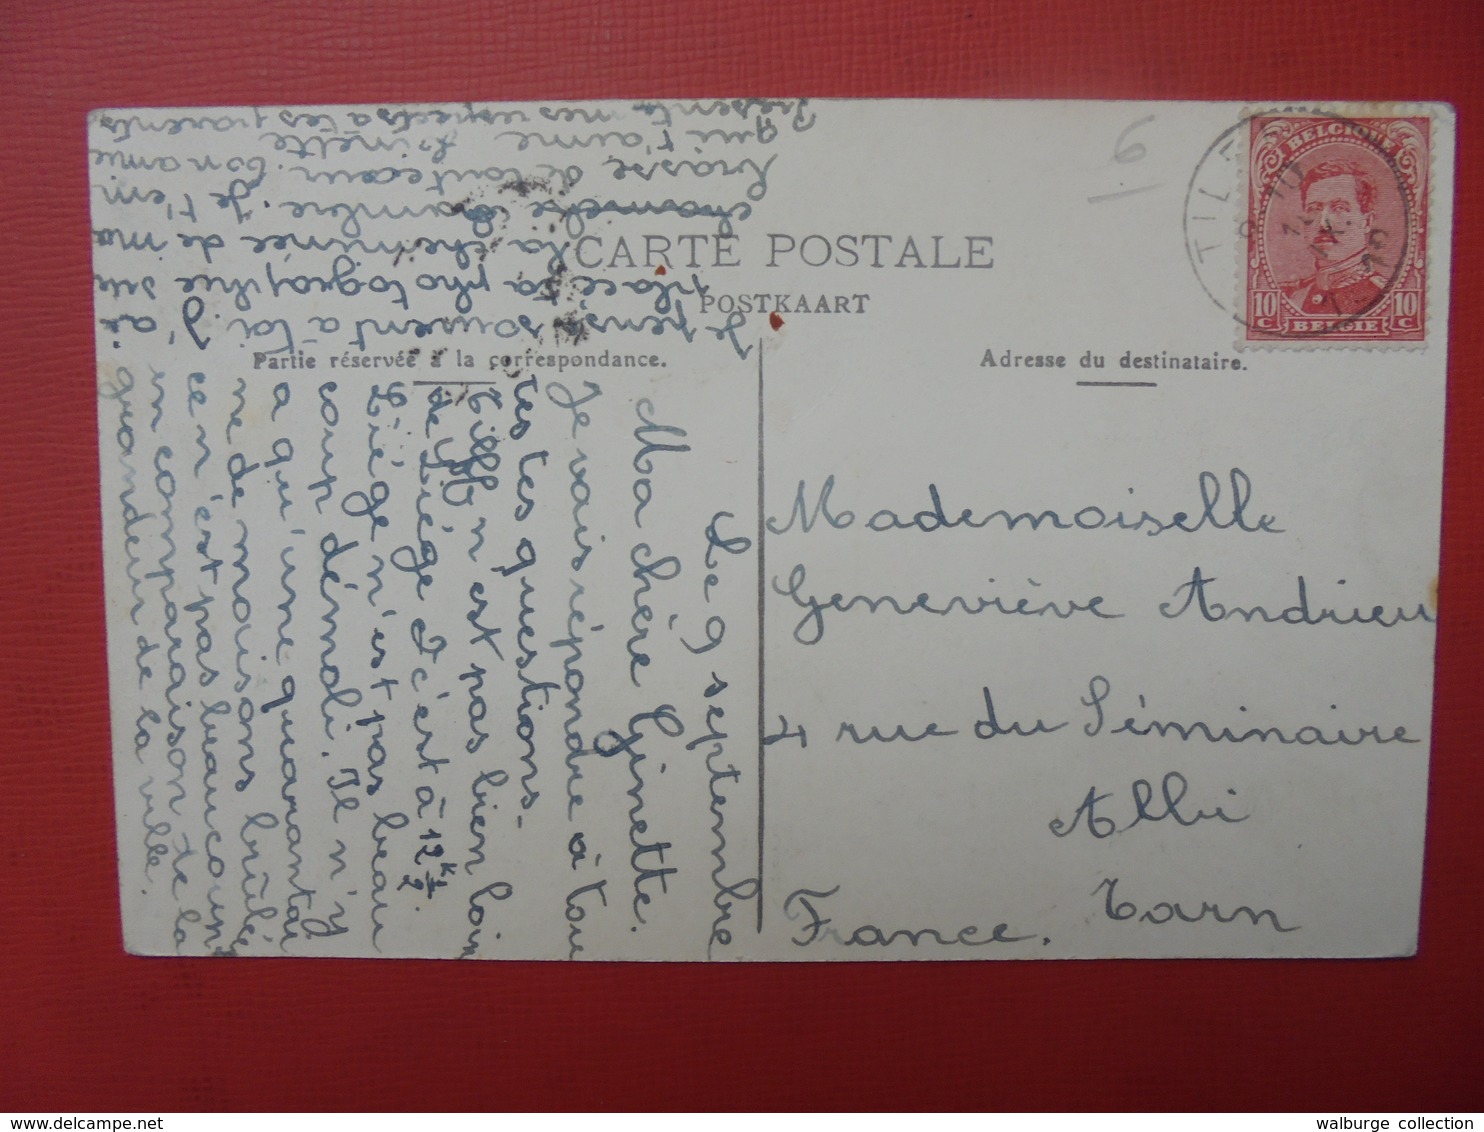 CARTE POSTALE
POSTKAART
Partie réservée à la correspondance.
Adresse du destinataire.
BELGIQUE
10 c
10 c
BELGIË
TILF
6
Le 9 septembre
Ma chère Ginette.
Je vais répondre à tou
tes tes questions.
Tilff n'est pas bien loin
de Liége c'est à 12 k 1/2.
Liége n'est pas beau
coup démoli. Il n'y
a qu'une quarantai
ne de maisons brûlé
ce n'est pas beaucoup
en comparaison de la
grandeur de la ville.
Je pense souvent à toi J'ai
placé ta photographie sur
la cheminée de ma
chambre. Je t'em
brasse de tout cœur. Ton amie
qui t'aime
Présente mes respects à tes parents
Mademoiselle
Geneviève Andrieu
4 rue du Séminaire
Albi
Tarn
France.
walburge collection